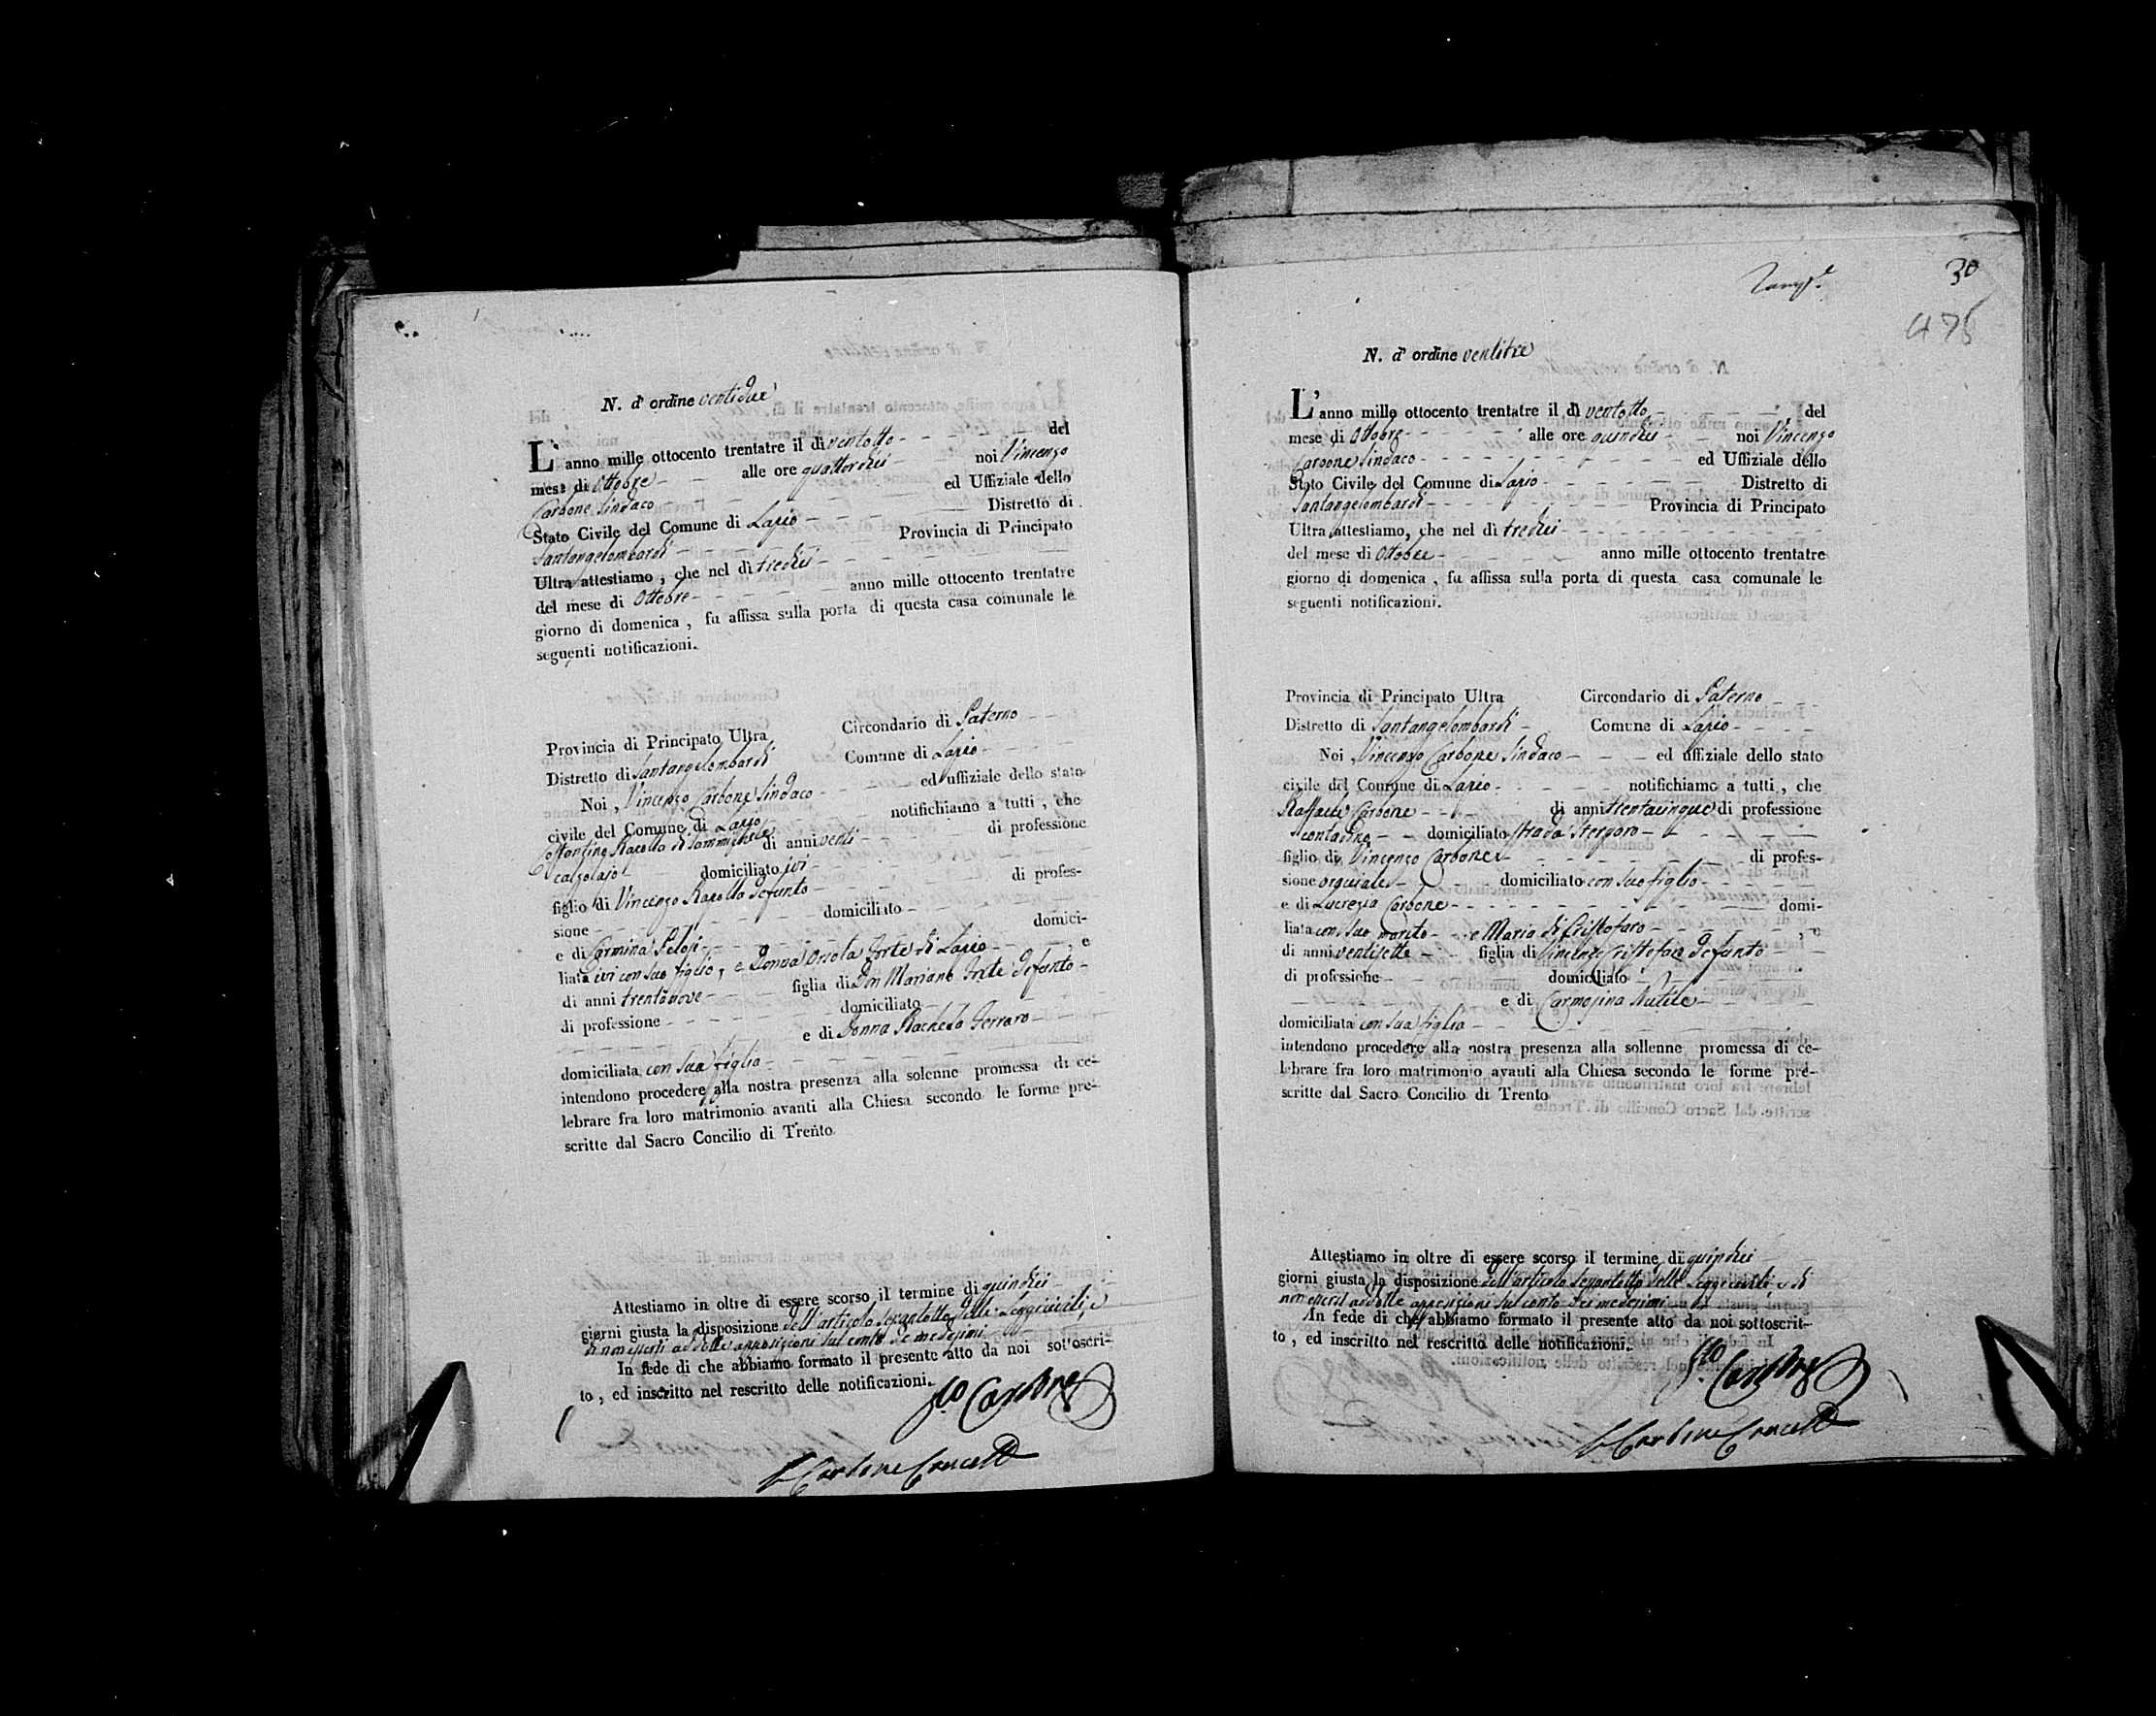 N. d' ordine ventidue
L' anno mille ottocento trentatre il dì ventotto del
mese di Ottobre alle ore quattordici noi Vincenzo
Carbone Sindaco ed Uffiziale dello
Stato Civile del Comune di Lapio Distretto di
Santangelombardi Provincia di Principato
Ultra attestiamo, che nel dì tredici
del mese di Ottobre anno mille ottocento trentatre
giorno di domenica, fu affissa sulla porta di questa casa comunale le
seguenti notificazioni.
Provincia di Principato Ultra Circondario di Paterno
Distretto di Santangelombardi Comune di Lapio
Noi, Vincenzo Carbone Sindaco ed uffiziale dello stato
civile del Comune di Lapio notifichiamo a tutti, che
Costantino Rapolla di Sammichele di anni venti di professione
calzolajo domiciliato ivi
figlio di Vincenzo Rapolla defunto di profes-
sione domiciliato
e di Carmina Pelosi domici-
liata ivi con suo figlio, e Donna Orsola Forte di Lapio, e
di anni trentanove figlia di Don Mariano Forte defunto
di professione domiciliato
e di Donna Rachela Ferraro
domiciliata con sua figlia
intendono procedere alla nostra presenza alla solenne promessa di ce-
lebrare fra loro matrimonio avanti alla Chiesa secondo le forme pre-
scritte dal Sacro Concilio di Trento.
Attestiamo in oltre di essere scorso il termine di quindici
giorni giusta la disposizione dell'articolo sessantotto delle Leggi civili, e
di non esserci addotte opposizioni sul conto de medesimi
In fede di che abbiamo formato il presente atto da noi sottoscri-
to, ed inscritto nel rescritto delle notificazioni.
Carbone
Carbone
30
475
N. d' ordine ventitre
L' anno mille ottocento trentatre il dì ventotto del
mese di Ottobre alle ore quindici noi Vincenzo
Carbone Sindaco ed Uffiziale dello
Stato Civile del Comune di Lapio Distretto di
Santangelombardi Provincia di Principato
Ultra attestiamo, che nel dì tredici
del mese di Ottobre anno mille ottocento trentatre
giorno di domenica, fu affissa sulla porta di questa casa comunale le
seguenti notificazioni.
Provincia di Principato Ultra Circondario di Paterno
Distretto di Santangelombardi Comune di Lapio
Noi, Vincenzo Carbone Sindaco ed uffiziale dello stato
civile del Comune di Lapio notifichiamo a tutti, che
Raffaele Carbone di anni trentacinque di professione
contadino domiciliato strada Sterparo
figlio di Vincenzo Carbone di profes-
sione domiciliato con suo figlio
e di Lucrezia Carbone domi-
liata con suo marito e Maria di Cristofaro, e
di anni ventisette figlia di Vincenzo Cristofaro defunto
di professione domiciliato
e di Carmosina Nutile
domiciliata con sua figlia
intendono procedere alla nostra presenza alla sollenne promessa di ce-
lebrare fra loro matrimonio avanti alla Chiesa secondo le forme pre-
scritte dal Sacro Concilio di Trento
Attestiamo in oltre di essere scorso il termine di quindici
giorni giusta la disposizione dell'articolo sessantotto delle Leggi civili, e di
non esserci addotte opposizioni sul conto dei medesimi
In fede di che abbiamo formato il presente atto da noi sottoscrit-
to, ed inscritto nel rescritto delle notificazioni.
Carbone
Carbone